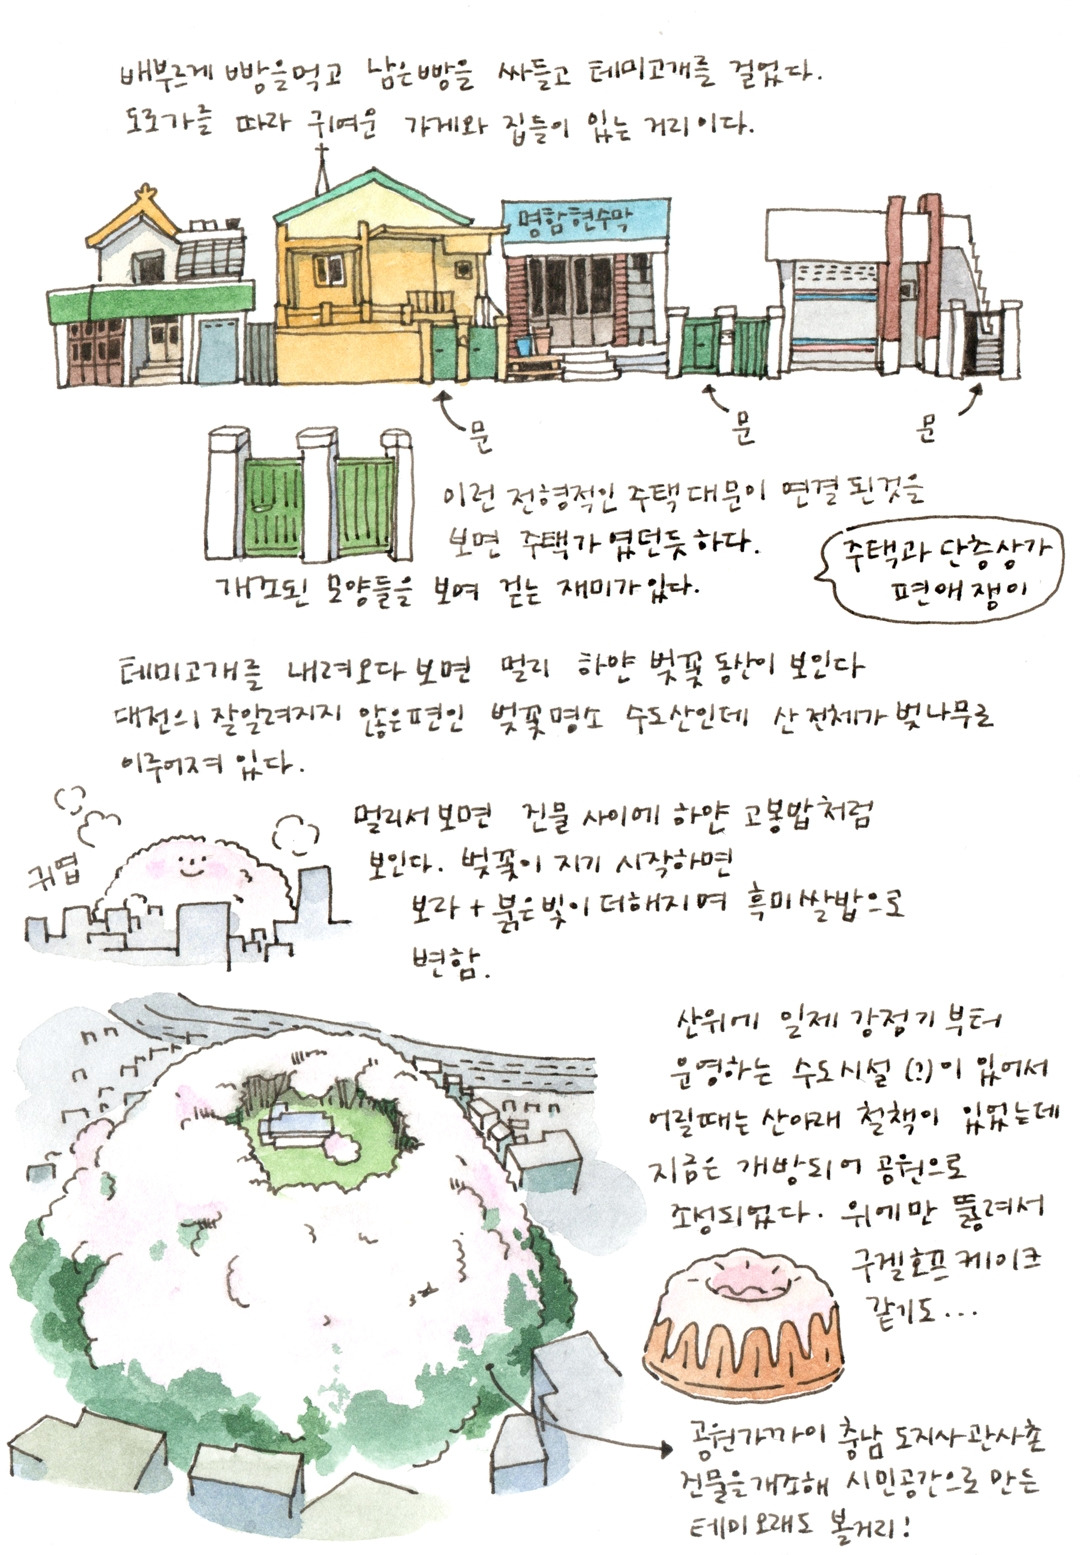 배부르게 빵을먹고 남은빵을 싸들고 테미고개를 걸었다.
도로가를 따라 귀여운 가게와 집들이 있는 거리이다.
명함현수막
문
문
문
이런 전형적인 주택대문이 연결된것을
보면 주택가 였던듯하다.
개조된 모양들을 보며 걷는 재미가있다.
주택과 단층상가
편애쟁이
테미고개를 내려오다보면 멀리 하얀 벚꽃동산이 보인다
대전의 잘알려지지 않은편인 벚꽃명소 수도산인데 산전체가벚나무로
이루어져있다.
귀엽
멀리서보면 건물 사이에 하얀 고봉밥처럼
보인다. 벚꽃이 지기 시작하면
보라+붉은빛이더해지며 흑미쌀밥으로
변함.
산위에 일제 강점기부터
운영하는 수도시설(?)이 있어서
어릴때는산아래 철책이 있었는데
지금은 개방되어 공원으로
조성되었다. 위에만 뚫려서
구겔호프케이크
같기도...
공원가까이 충남도지사관사촌
건물을개조해 시민공간으로만든
테미오래도 볼거리!